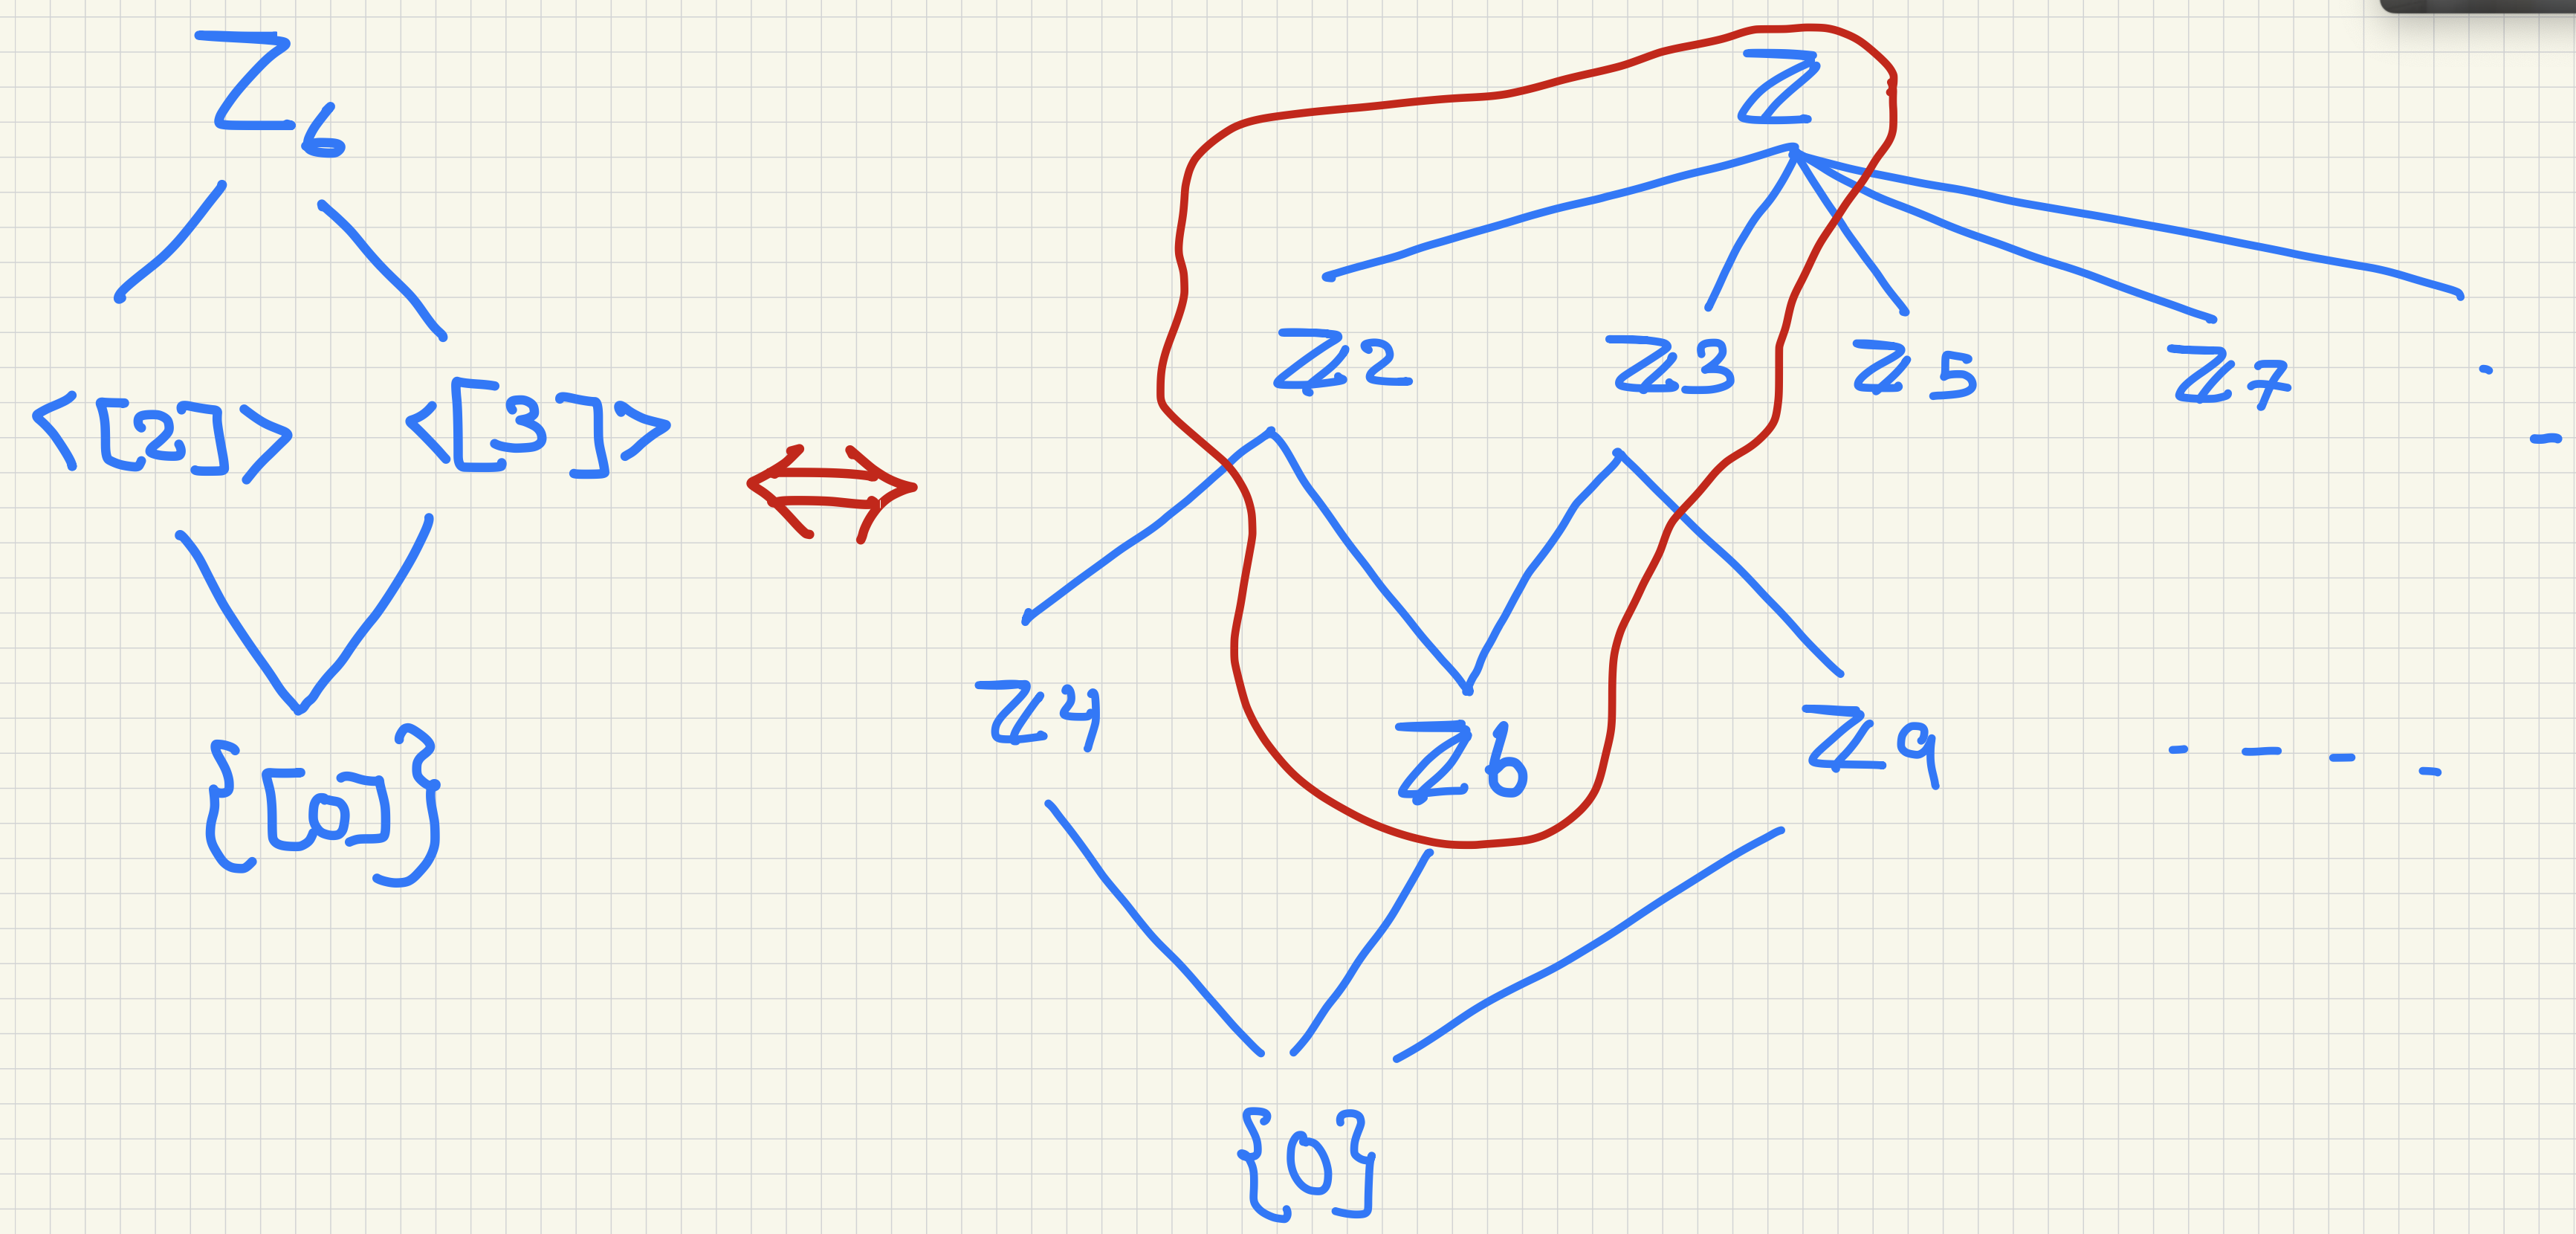 Z₆
<[2]> <[3]>
{[0]}
⇔
Z
Z2 Z3 Z5 Z7
Z4 Z6 Z9
{0}